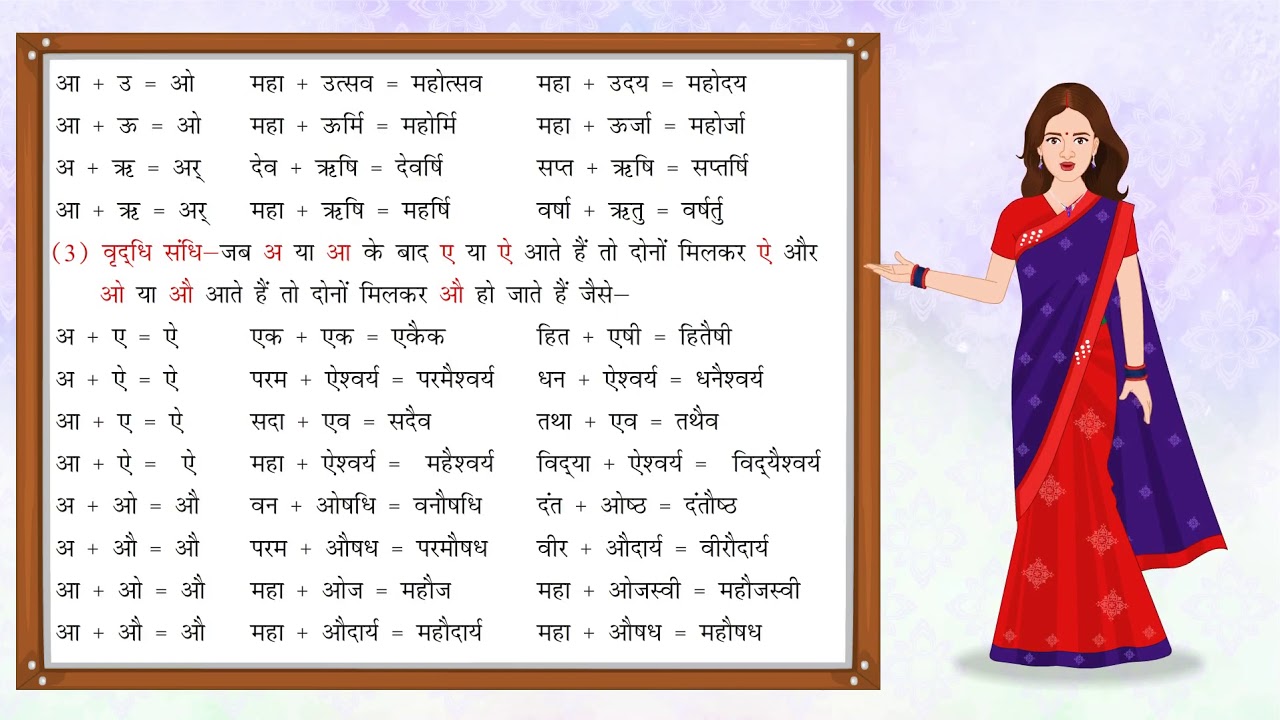 आ + उ = ओ महा + उत्सव = महोत्सव महा + उदय = महोदय
आ + ऊ = ओ महा + ऊर्मि = महोर्मि महा + ऊर्जा = महोर्जा
अ + ऋ = अर् देव + ऋषि = देवर्षि सप्त + ऋषि = सप्तर्षि
आ + ऋ = अर् महा + ऋषि = महर्षि वर्षा + ऋतु = वर्षर्तु
(3) वृद्‌धि संधि–जब अ या आ के बाद ए या ऐ आते हैं तो दोनों मिलकर ऐ और
ओ या औ आते हैं तो दोनों मिलकर औ हो जाते हैं जैसे–
अ + ए = ऐ एक + एक = एकैक हित + एषी = हितैषी
अ + ऐ = ऐ परम + ऐश्वर्य = परमैश्वर्य धन + ऐश्वर्य = धनैश्वर्य
आ + ए = ऐ सदा + एव = सदैव तथा + एव = तथैव
आ + ऐ = ऐ महा + ऐश्वर्य = महैश्वर्य विद्‌या + ऐश्वर्य = विद्‌यैश्वर्य
अ + ओ = औ वन + ओषधि = वनौषधि दंत + ओष्ठ = दंतौष्ठ
अ + औ = औ परम + औषध = परमौषध वीर + औदार्य = वीरौदार्य
आ + ओ = औ महा + ओज = महौज महा + ओजस्वी = महौजस्वी
आ + औ = औ महा + औदार्य = महौदार्य महा + औषध = महौषध